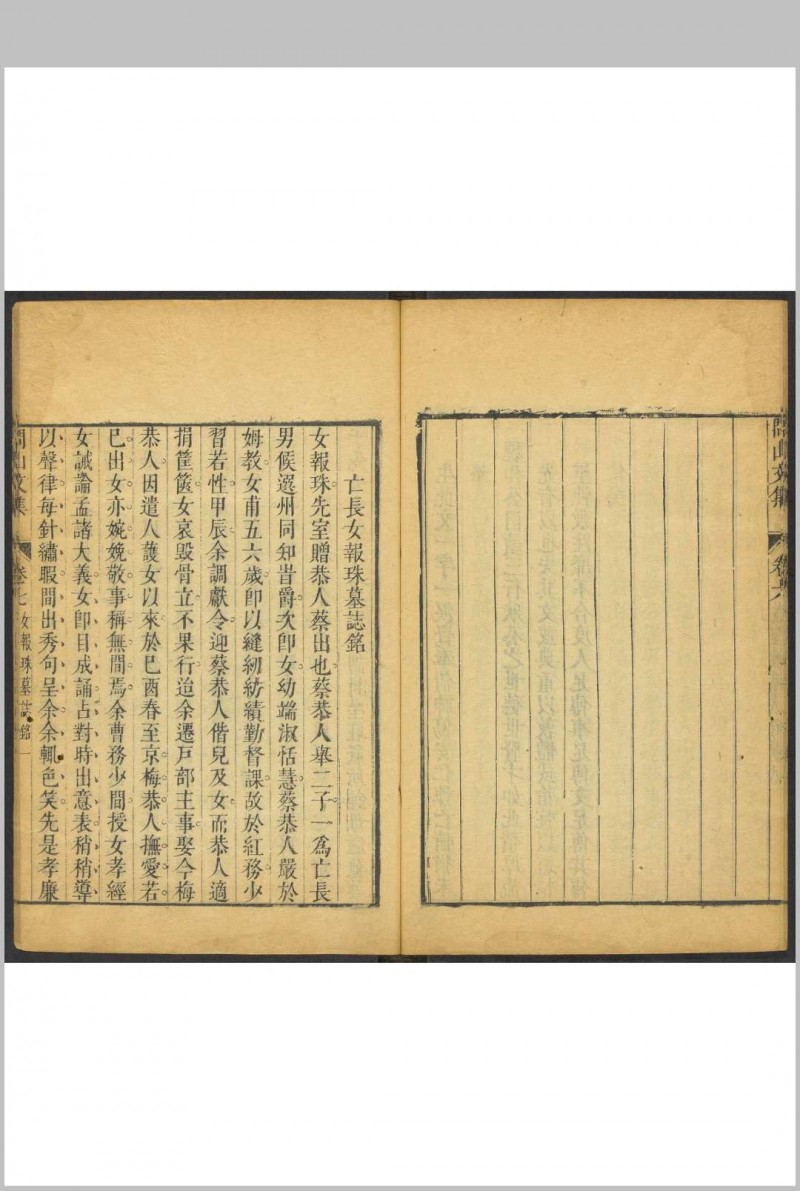 亡長女報珠墓誌銘
女報珠先室贈恭人蔡出也蔡恭人舉二子一為亡長
男候選州同知昔爵次卽女幼端淑恬慧蔡恭人嚴於
姆教女甫五六歲卽以縫紉紡績勤督課故於紅務少
習若性甲辰余調獻令迎蔡恭人偕兒及女而恭人適
捐筐篋女哀毀骨立不果行迨余遷戶部主事娶今梅
恭人因遣人護女以來於己酉春至京梅恭人撫愛若
已出女亦婉娩敬事稱無間焉余曹務少間授女孝經
女誡論孟諸大義女卽目成誦占對時出意表稍稍導
以聲律每針繡暇間出秀句呈余余輒色笑先是孝廉
山文集
卷七
女報珠墓誌銘
一
山文集
卷六